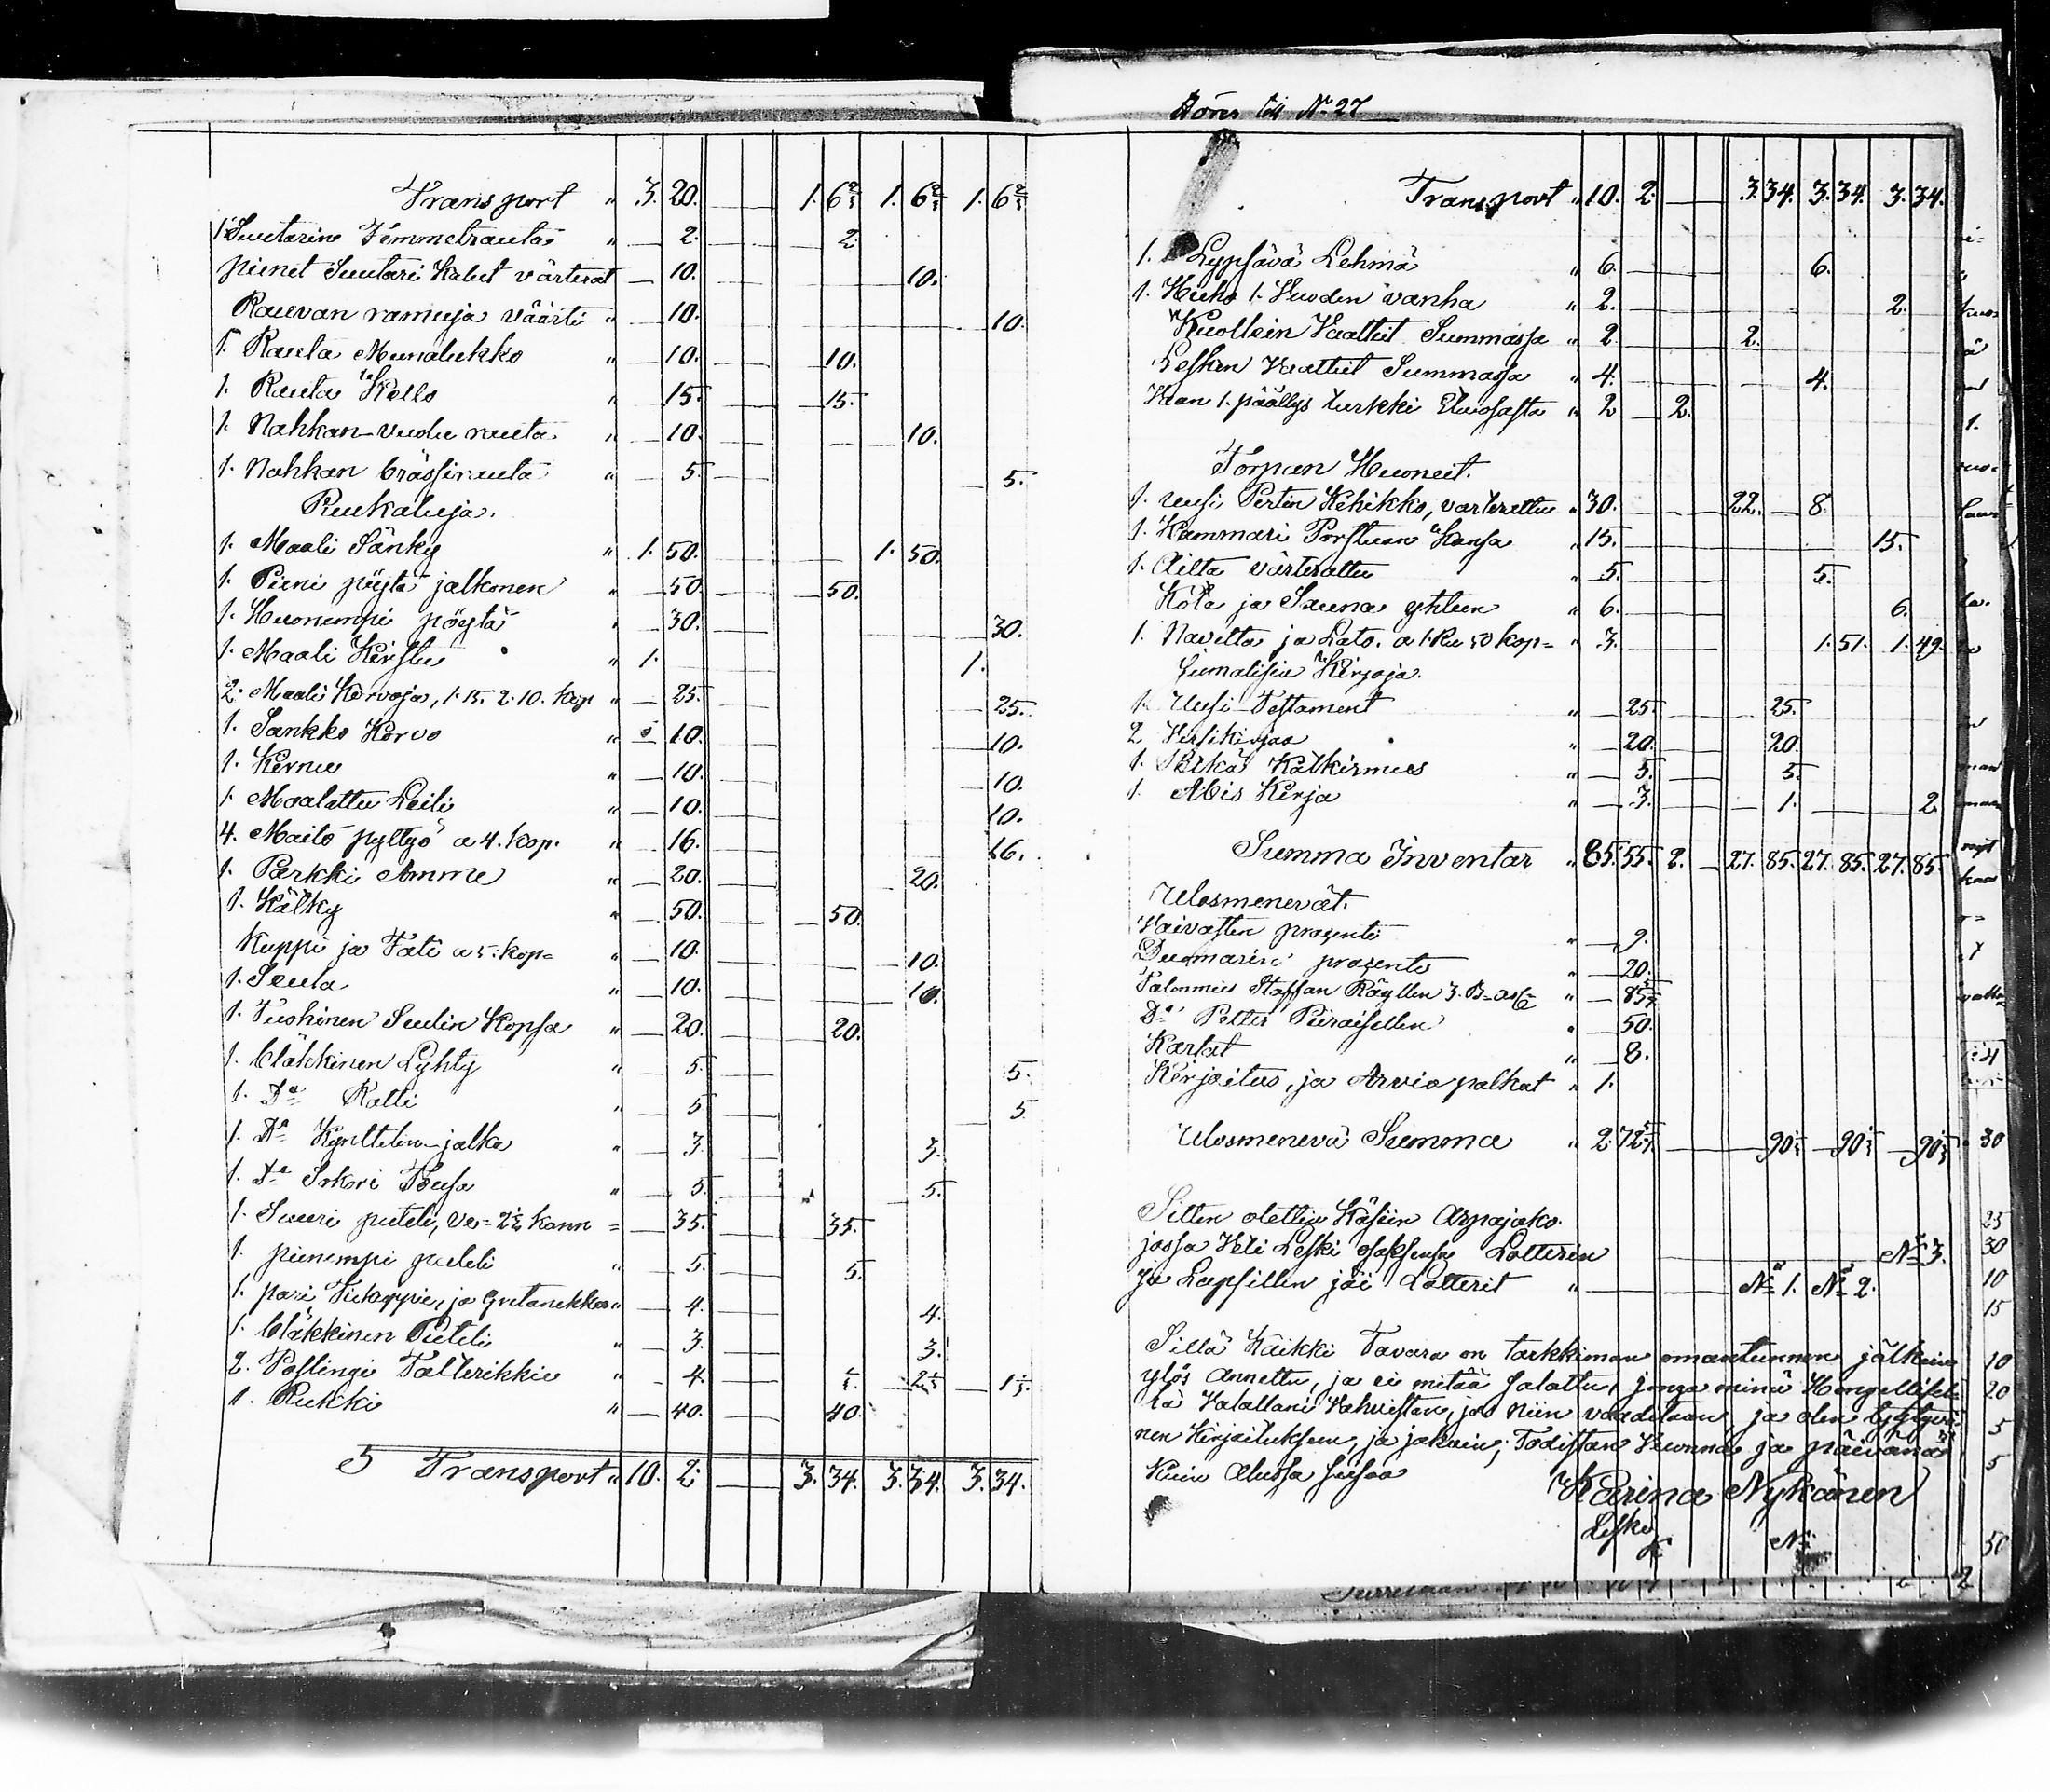 Transport " 3. 20. 1. 6 2/3 1. 6 2/3 1. 6 2/3
1. Suutarin Timmelrauta " — 2. 2.
pienet Suutari Kalut värterat — 10. 10.
Rauvan ramuja väärti " — 10. 10.
1. Rauta Munalukko " — 10. 10.
1. Rauta Kello " — 15. 15.
1. Nahkan vuolu rauta " — 10. 10.
1. Nahkan brässirauta " — 5. 5.
Puukaluja.
1. Maali Sänky " 1. 50. 1. 50.
1. Pieni pöytä jalkonen " — 50. 50.
1. Huonempi pöytä " — 30. 30.
1. Maali Kirstu " 1. 1.
2. Maali Korvoja, 1. 15. 2. 10. Kop " — 25. 25.
1. Sankko Korvo " — 10. 10.
1. Kirnu " — 10. 10.
1. Maalattu Leili " — 10. 10.
4. Maito pyttyö a 4. kop. " — 16. 16.
1. Parkki Amme " — 20. 20.
1. Kälky " — 50. 50.
Kuppi ja Fati a 5. kop= " — 10. 10.
1. Seula " — 10. 10.
1. Tuohinen Suolin Kopsa " — 20. 20.
1. Cläkkinen Lyhty " — 5. 5.
1. Do Ratti " — 5 5.
1. Do Kynttelin-jalka " — 3. 3.
1. Do Sokori Tousa " — 5. 5.
1. Suuri puteli, ve= 2 1/2 kann = — 35. 35.
1. pienempi puteli " — 5. 5.
1. pari Tiekoppie, ja Gretanekka " — 4. 4.
1. Cläkkinen Puteli " — 3. 3.
2. Poslingi Talterikkie " — 4. 2 1/3 1 1/3.
1. Rukki " — 40. 40.
Transport " 10. 2. 3. 34. 3. 34. 3. 34.
No 27
Transport " 10. 2. 3. 34. 3. 34. 3. 34.
1. Lypsävä Lehmä " 6. 6.
1. Hieho 1. Vuoden vanha " 2. 2.
Kuollein Vaattet Summassa " 2. 2.
Lesken Vaattet Summassa " 4. 4.
Vaan 1. päällys turkki Etuosasta " 2 — 2.
Torpan Huoneet.
1. uusi Pertin Kehikko, varterattu " 30. 22. — 8.
1. Kammari Porstuan Kansa " 15. 15.
1. Aitta värterattu " 5. 5.
Kota ja Sauna yhteen " 6. 6.
1. Navetta ja Lato. a 1. Ru 50 kop= " 3. 1. 51. 1. 49.
Jumalisia Kirjoja.
1. Uusi-Testament " — 25. 25.
2 Versikirjaa " — 20. 20.
1. Kätkismus " — 5. 5.
1. Abis Kirja " — 3. 1. 2.
Summa Inventar " 85. 55. 2. — 27. 85. 27. 85. 27. 85.
Ulosmenevät.
Vaivasten prosenti " — 9.
Duomarin prosenti " — 20.
Talonmies Staffan Räyllen " — 85 5/7
Do Petter Piiraisellen " — 50.
Kartat " — 8.
Kirjoitus, ja Arvio palkat " 1.
Ulosmenevä Summa " 2. 72 5/7. — 90 1/3 — 90 1/3 — 90 1/3
Sitten otettiin Käsiin Arpajako.
jossa Veti Leski osaksensa Lotterin No 3.
ja Lapsillen jäi Lotterit " No 1. No 2.
Sillä Kaikki Tavara on tarkkiman omantunnon jälkeen
ylös Annettu, ja ei mitää salattu, jonga minä Hengellisel-
lä Valallani Vahvistan, jos niin vaaditaan, ja olen tyytyvä-
nen Kirjoitukseen, ja jakoin; Todistan Vuonna ja päivänä
Kuin Alussa seisoo
Karina Nykänen
Leski
K N